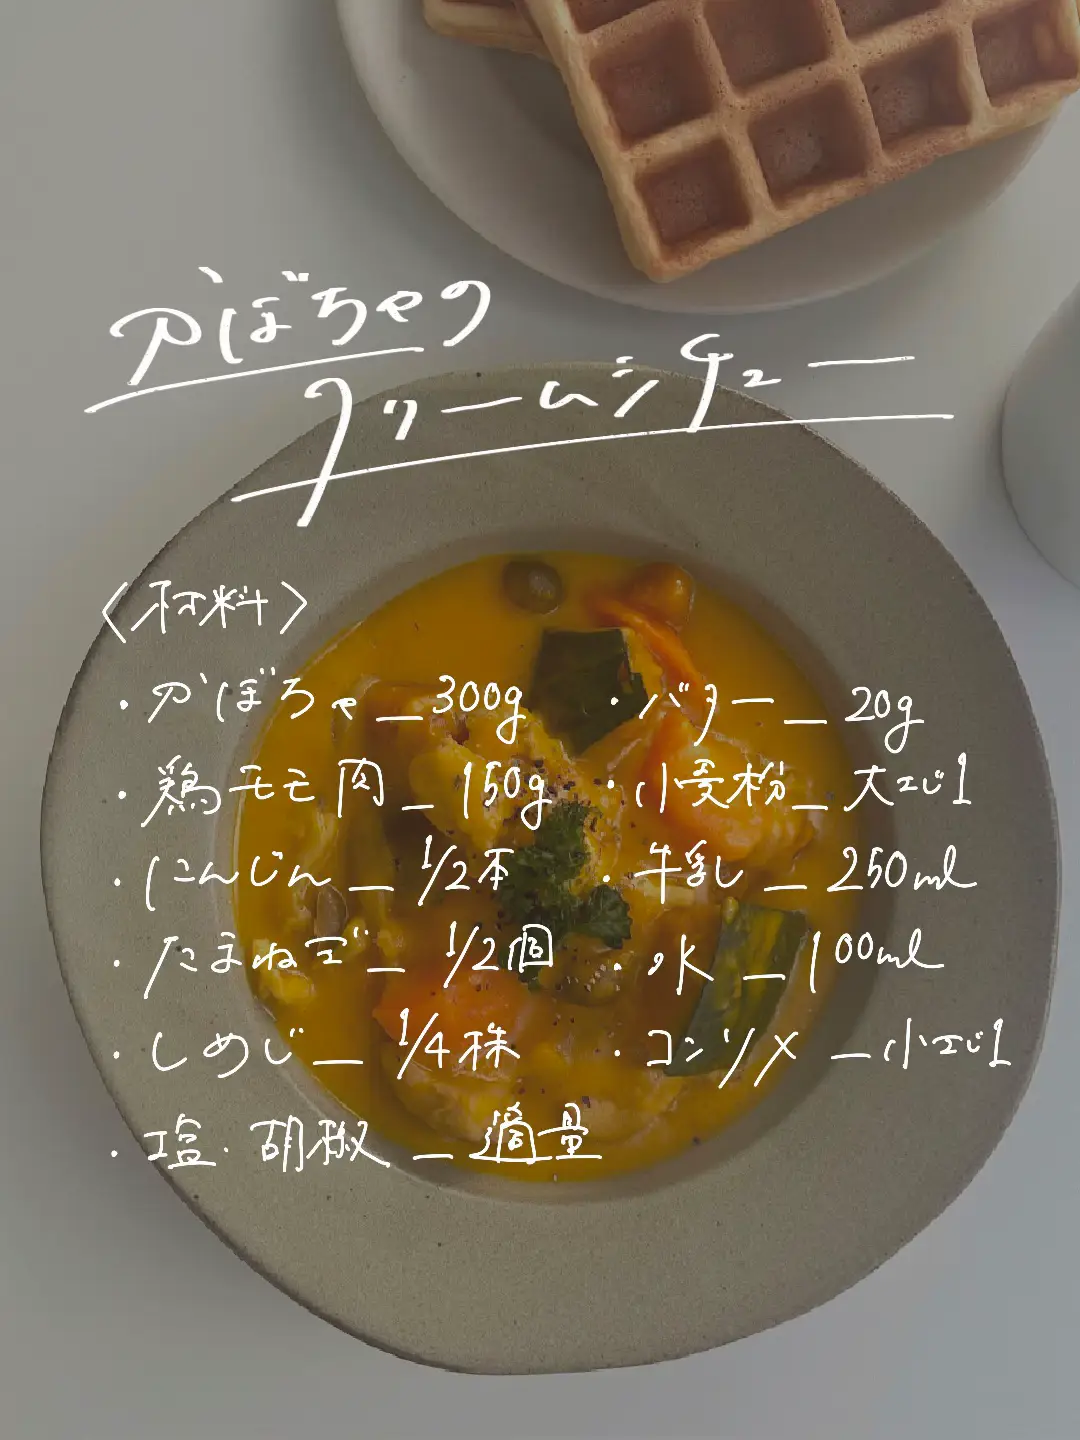 かぼちゃの
クリームシチュー
〈材料〉
・かぼちゃ_300g
・鶏モモ肉_150g
・にんじん_1/2本
・たまねぎ_1/2個
・しめじ_1/4株
・塩・胡椒_適量
・バター_20g
・小麦粉_大さじ1
・牛乳_250ml
・水_100ml
・コンソメ_小さじ1